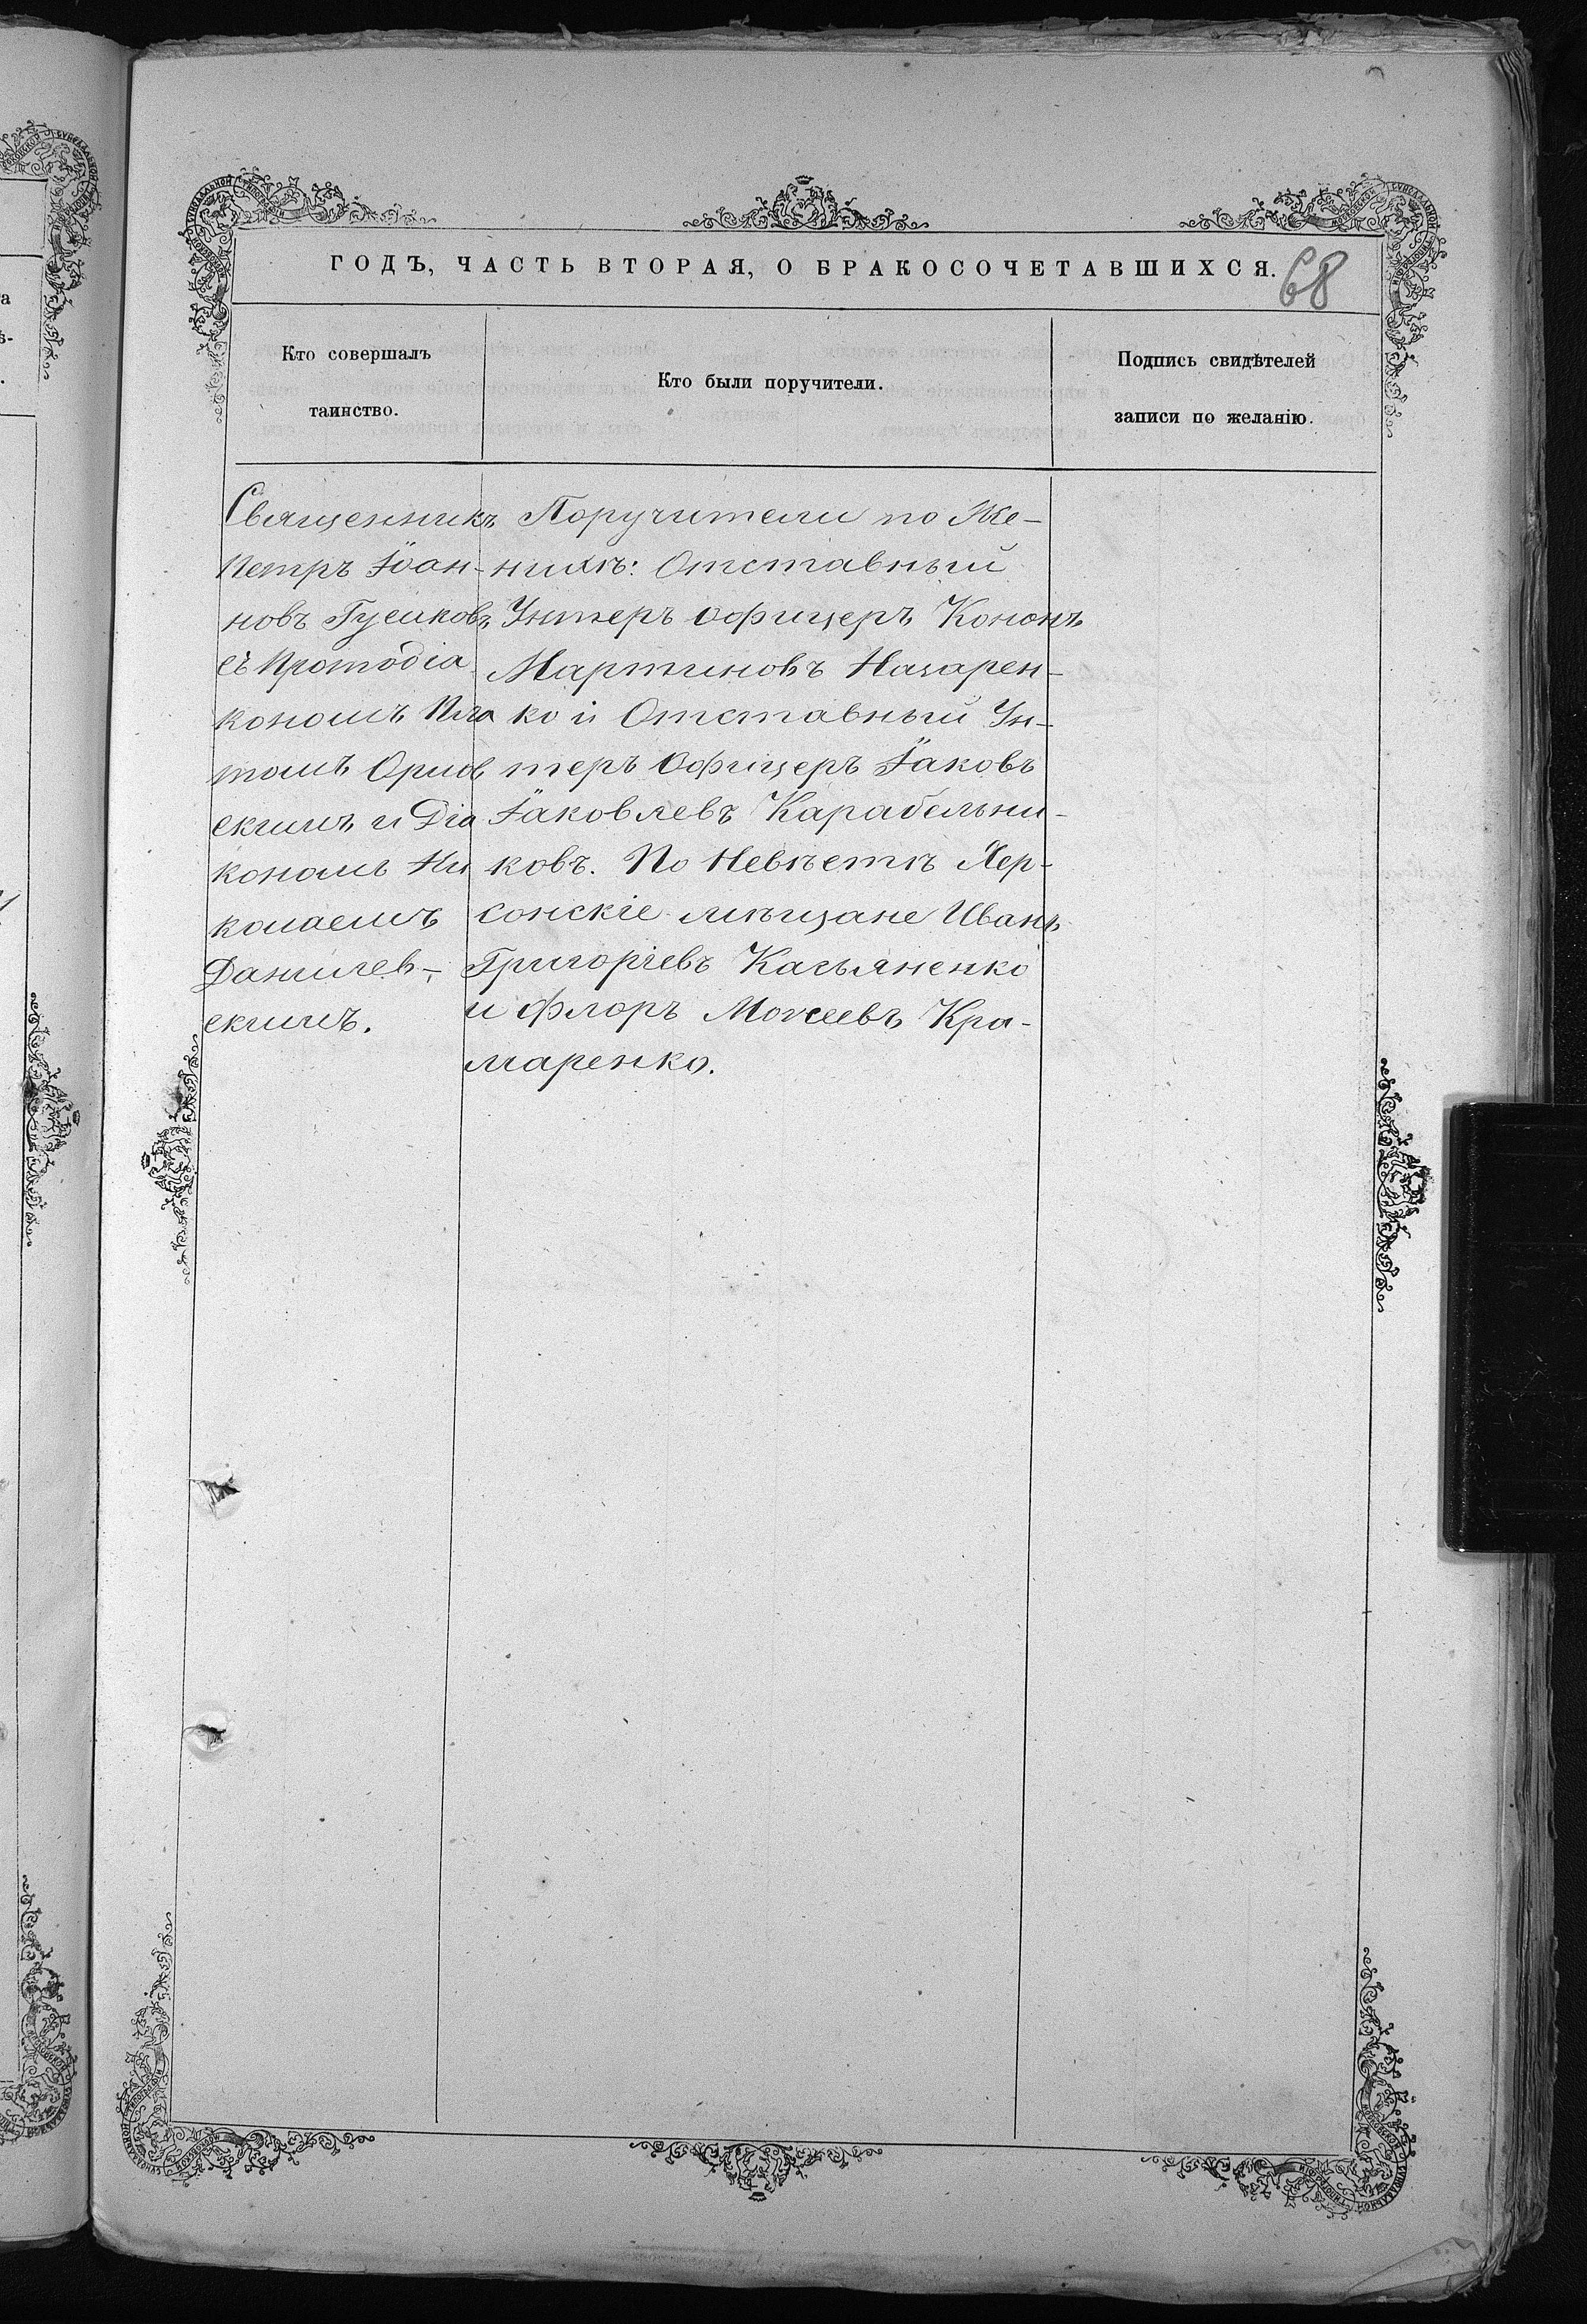 ГОДЪ, ЧАСТЬ ВТОРАЯ, О БРАКОСОЧЕТАВШИХСЯ.
68
Кто совершалъ
таинство.
Кто были поручители.
Подпись свидѣтелей
записи по желанію.
Священникъ
Петръ Іоан-
новъ Гусиковъ
съ Протодіа
кономъ Пла
томъ Орлов
скимъ и Діа
кономъ Ни
колаемъ
Данилев-
скимъ.
Поручители по Же-
нихѣ: Отставный
Унтеръ офицеръ Кононъ
Мартиновъ Назарен-
ко и Отставный Ун-
теръ Офицеръ Іаковъ
Іаковлевъ Карабельни-
ковъ. По Невѣстѣ Хер-
сонскіе мѣщане Иванъ
Григоріевъ Касьяненко
и Флоръ Моѵсеевъ Кра-
маренко.